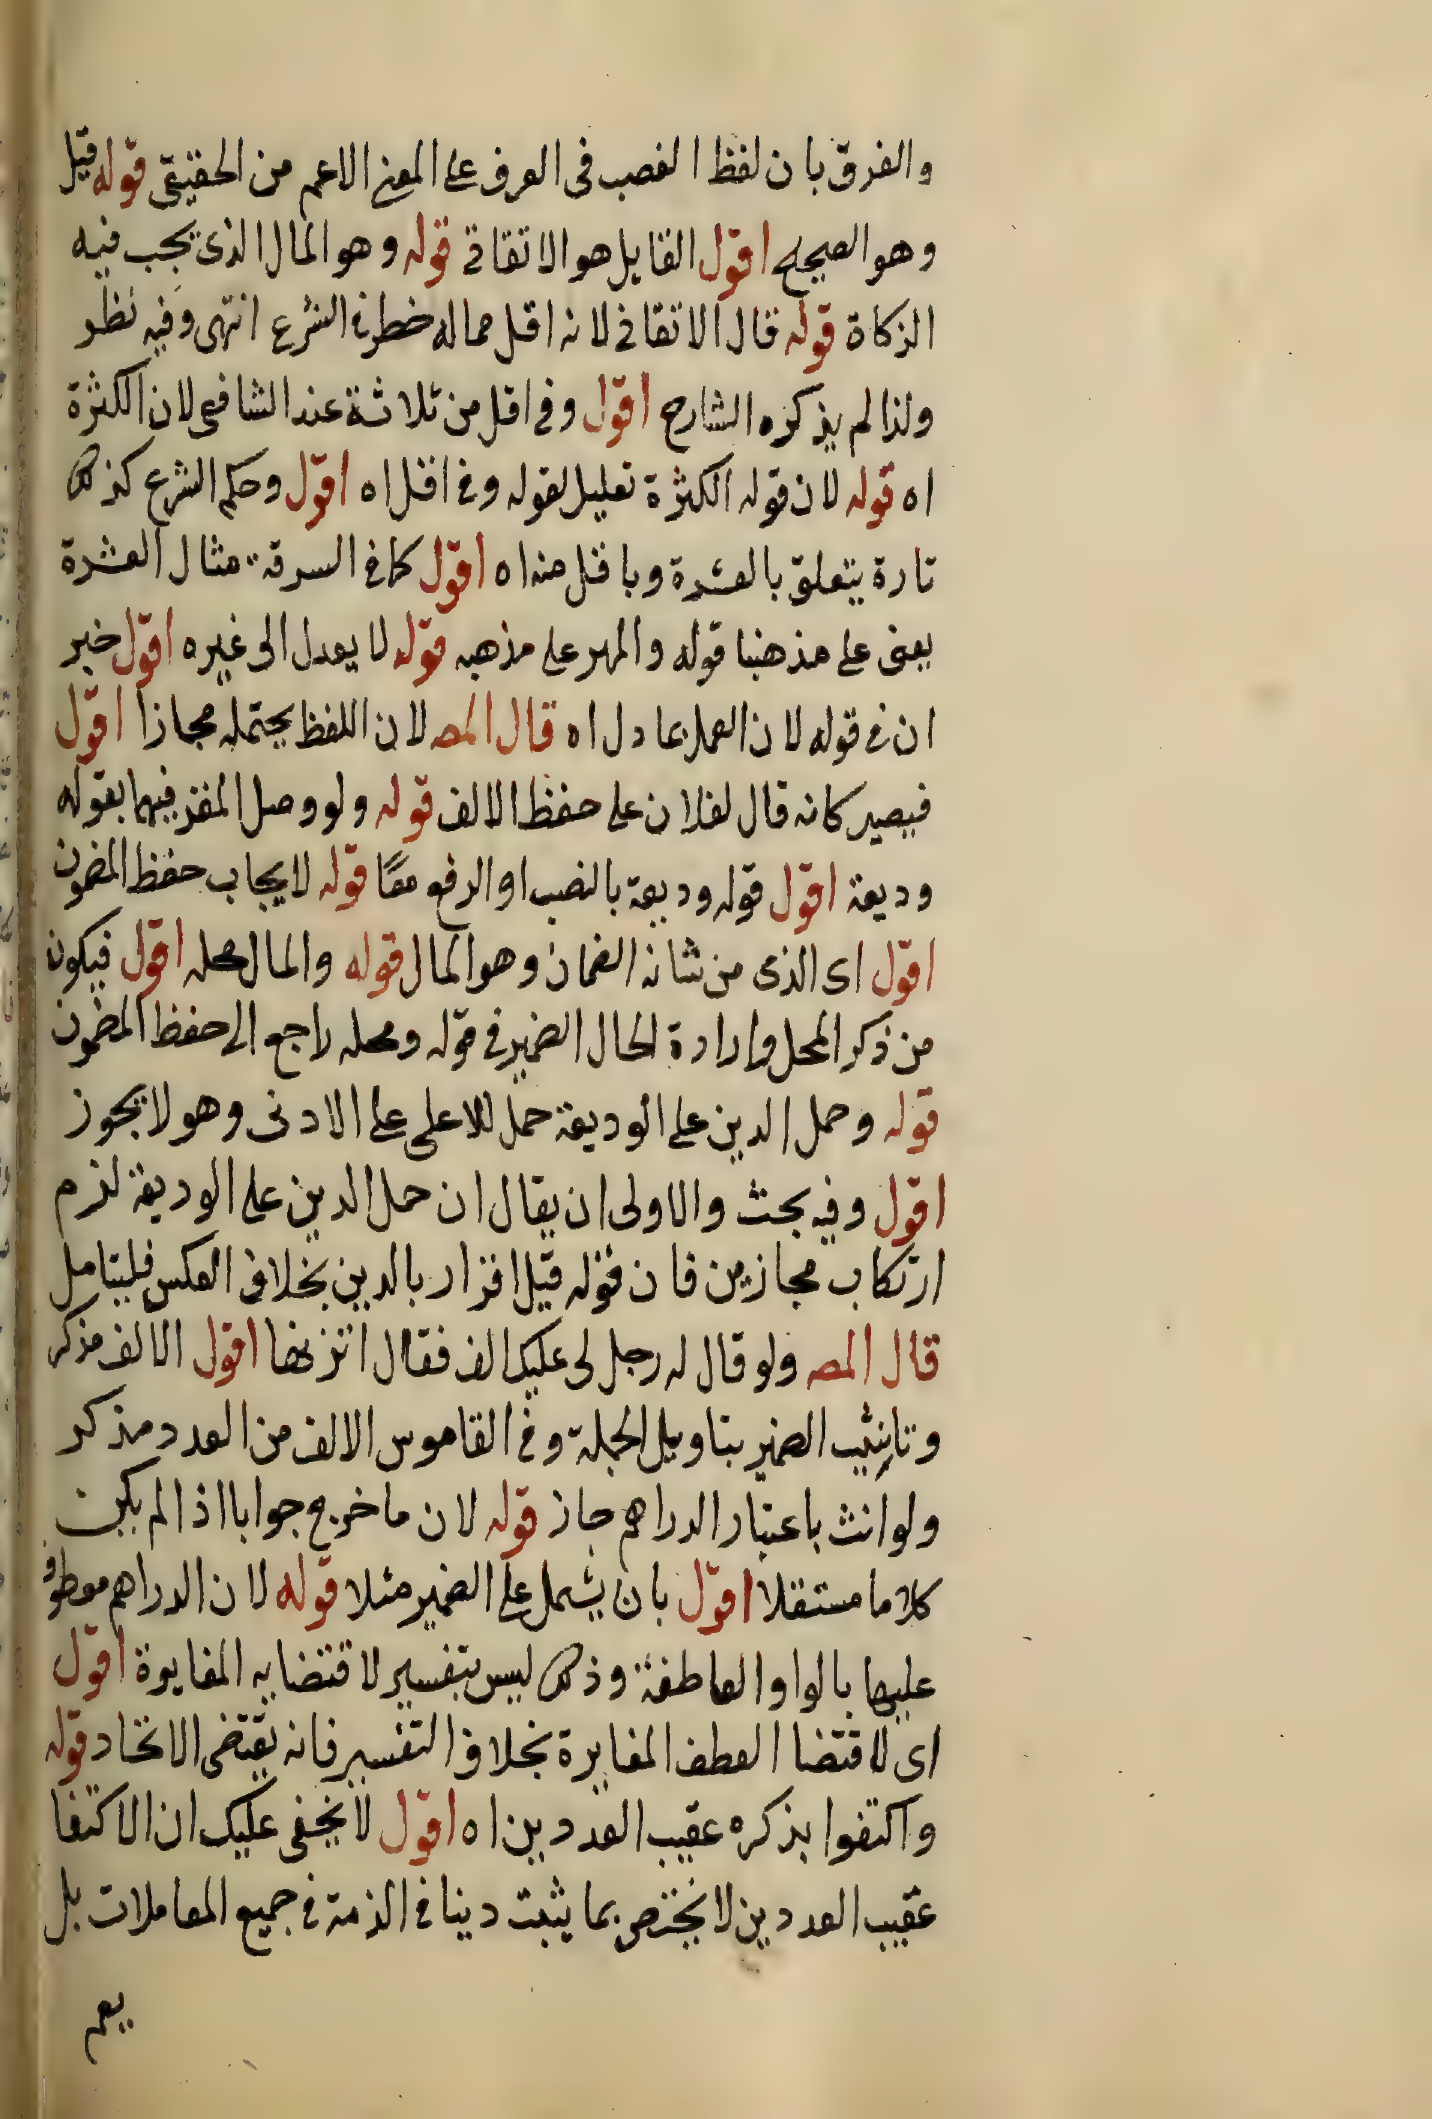 والفرق بان لفظ الغصب فى العرف على المعنى الاعم من الحقيقى قوله قيل
وهو الصحيح اقول القايل هو الاتقانى قوله وهو المال الذى يجب فيه
الزكاة قوله قال الاتقانى لانه اقل مما له خطر فى الشرع انتهى وفيه نظر
ولذا لم يذكره الشارح اقول وفى اقل من ثلاثة عند الشافعى لان الكثرة
اه قوله لان قوله الكثرة تعليل لقوله وفى اقل اه اقول وحكم الشرع كذلك
تارة يتعلق بالعشرة وباقل منه اه اقول كما فى السرقة مثال العشرة
يعنى على مذهبنا قوله والمهر على مذهبه قوله لا يعدل الى غيره اقول خبر
ان فى قوله لان العمل بما دل اه قال المصـ لان اللفظ يحتمله مجازا اقول
فيصير كانه قال لفلان على حفظ الالف قوله ولو وصل المقر فيهما بقوله
وديعة اقول قوله وديعة بالنصب او الرفع معًا قوله لايجاب حفظ المضمون
اقول اى الذى من شانه الضمان وهو المال قوله والمال محله اقول فيكون
من ذكر المحل وارادة الحال الضمير فى قوله ومحله راجع الى حفظ المضمون
قوله وحمل الدين على الوديعة حمل للاعلى على الادنى وهو لا يجوز
اقول وفيه بحث والاولى ان يقال ان حمل الدين على الوديعة لزم
ارتكاب مجازين فان قوله قبل اقرار بالدين بخلاف العكس فليتامل
قال المصـ ولو قال له رجل لى عليك الف فقال اتزنها اقول الالف مذكر
وتانيث الضمير بتاويل الجملة وفى القاموس الالف من العدد مذكر
ولو انث باعتبار الدراهم جاز قوله لان ما خرج جوابا اذا لم يكن
كلاما مستقلا اقول بان يشمل على الضمير مثلا قوله لان الدراهم معطوف
عليها بالواو العاطفة وذلك ليس بتفسير لاقتضايه المغايرة اقول
اى لاقتضا العطف المغايرة بخلاف التفسير فانه يقتضى الاتحاد قوله
واكتفوا بذكره عقيب العددين اه اقول لا يخفى عليك ان الاكتفا
عقيب العددين لا يختص بما يثبت دينا فى الذمة فى جميع المعاملات بل
يعم